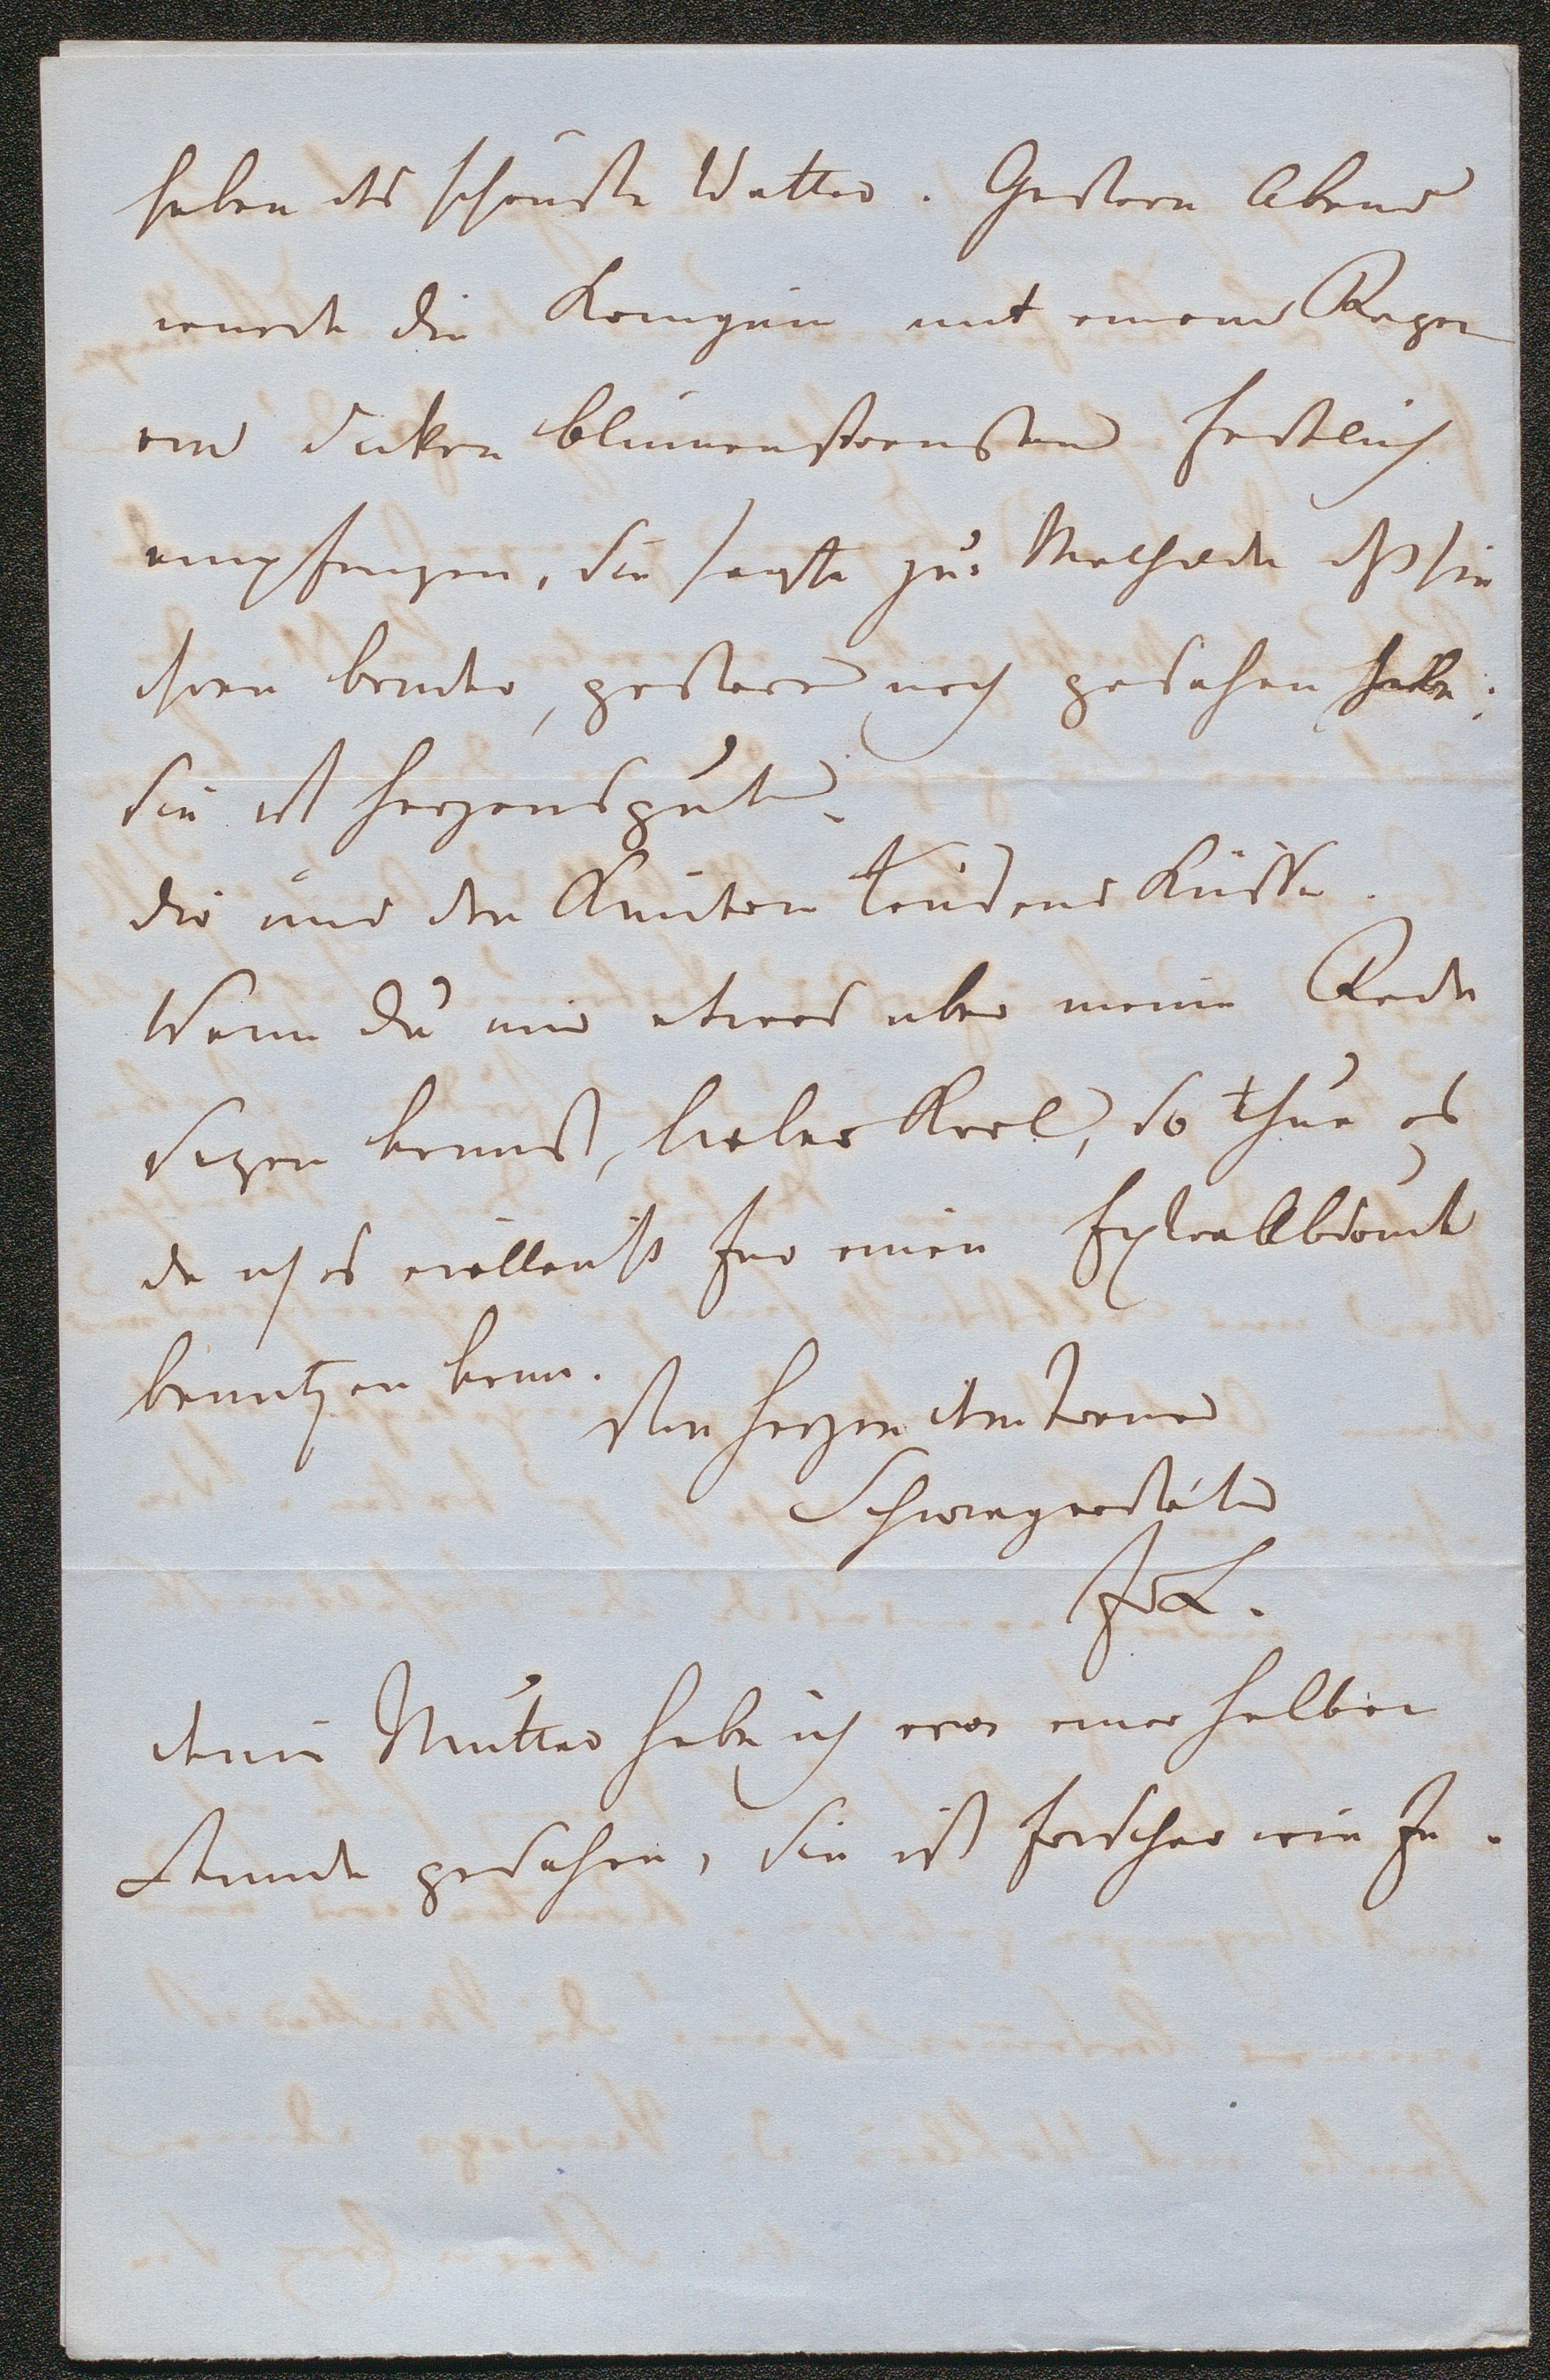 haben das schönste Wetter. Gestern Abend
wurde die Königin mit einem Regen
von dicken Blumensträußen festlich
empfangen, sie sagte zu Mathilde daß sie
ihren Bruder gestern noch gesehen habe;
sie ist herzensgut.
Dir und den Kindern tausend Küsse.
Wenn Du mir etwas über meine Rede
sagen kannst, lieber Karl, so thue es
da ich es vielleicht für einen Extra Abdruck
benutzen kann.
Von Herzen Dein treuer
Schwager
Deine Mutter habe ich vor einer halben
Stunde gesehen, sie ist frischer wie je.